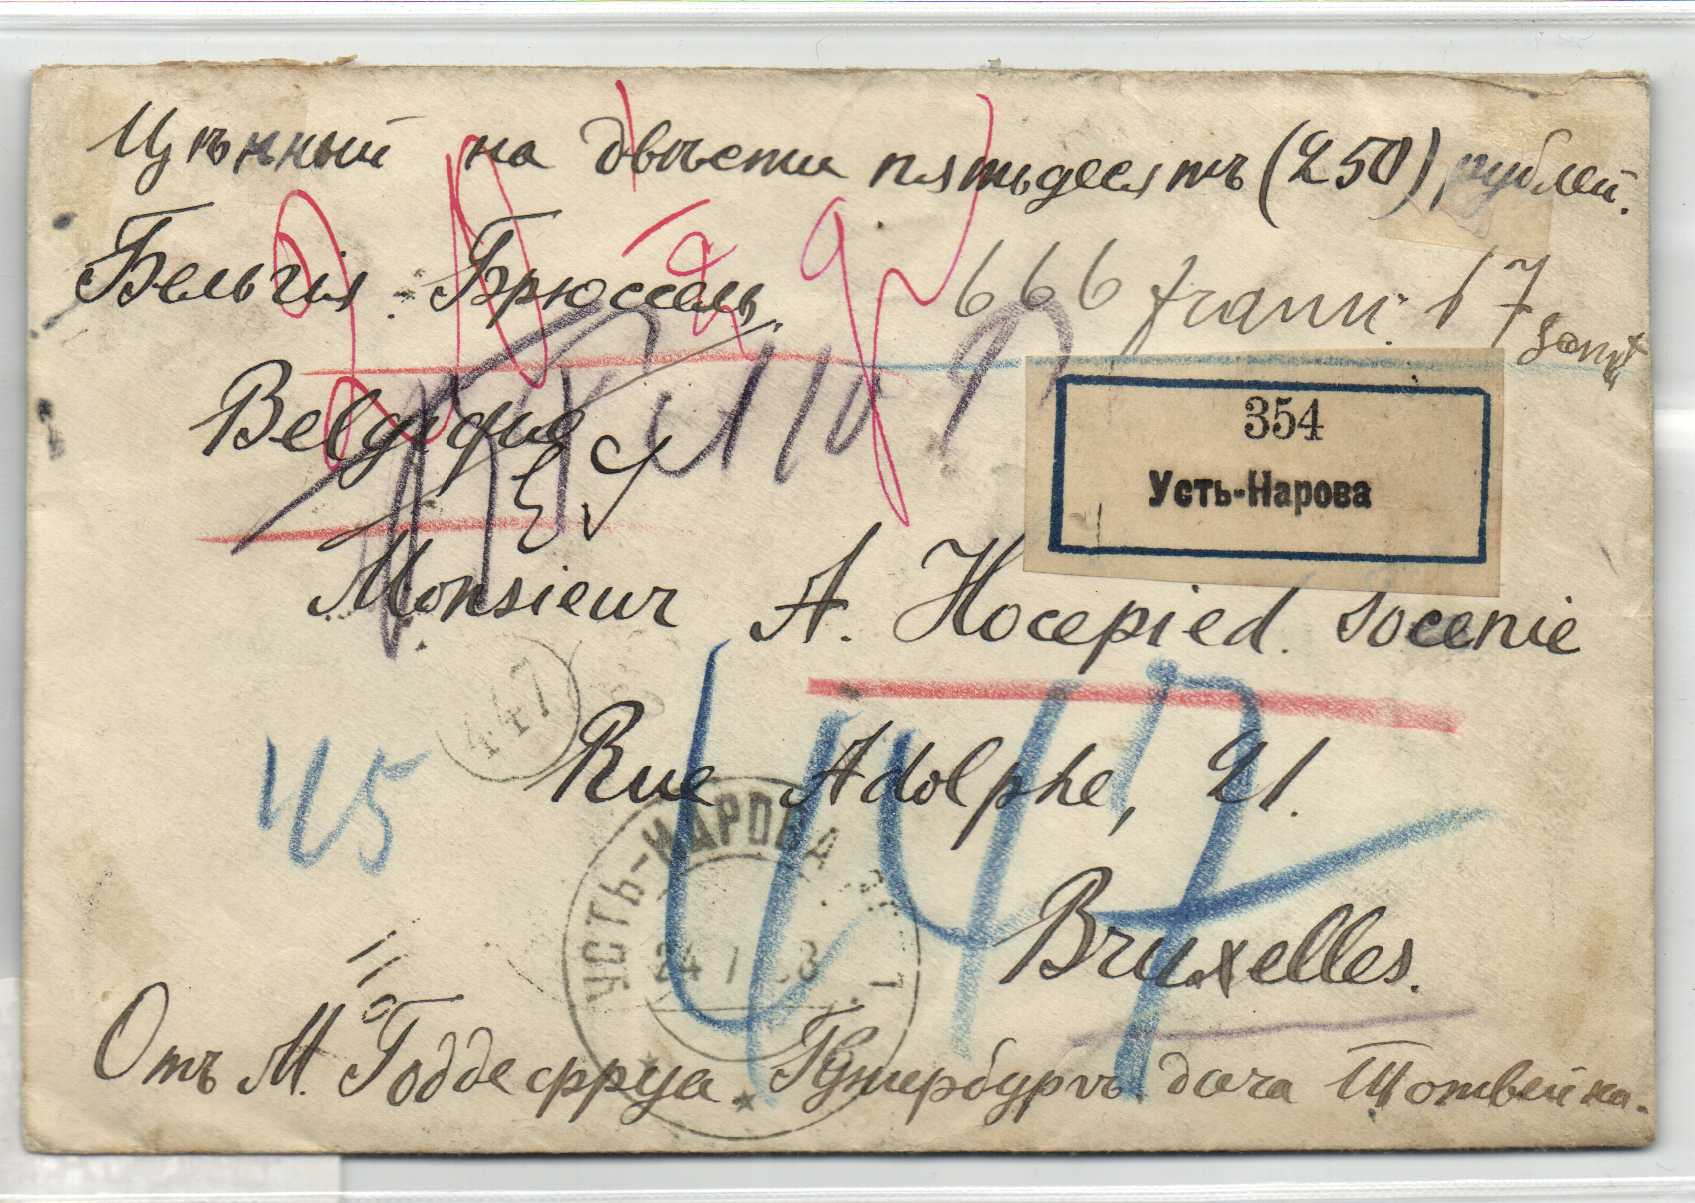 Цѣнный на двѣсти пятьдесятъ (250) рублей.
Бельгія. Брюссель.
666 franc. 17
Belgique
354
Усть-Нарова
Monsieur A. Hocepied. Socenie
447
Rue Adolphe, 21.
45
447
УСТЬ-НАРОВА
24 7
Bruxelles.
Отъ М. Годдефруа. Гунгербургъ. дача